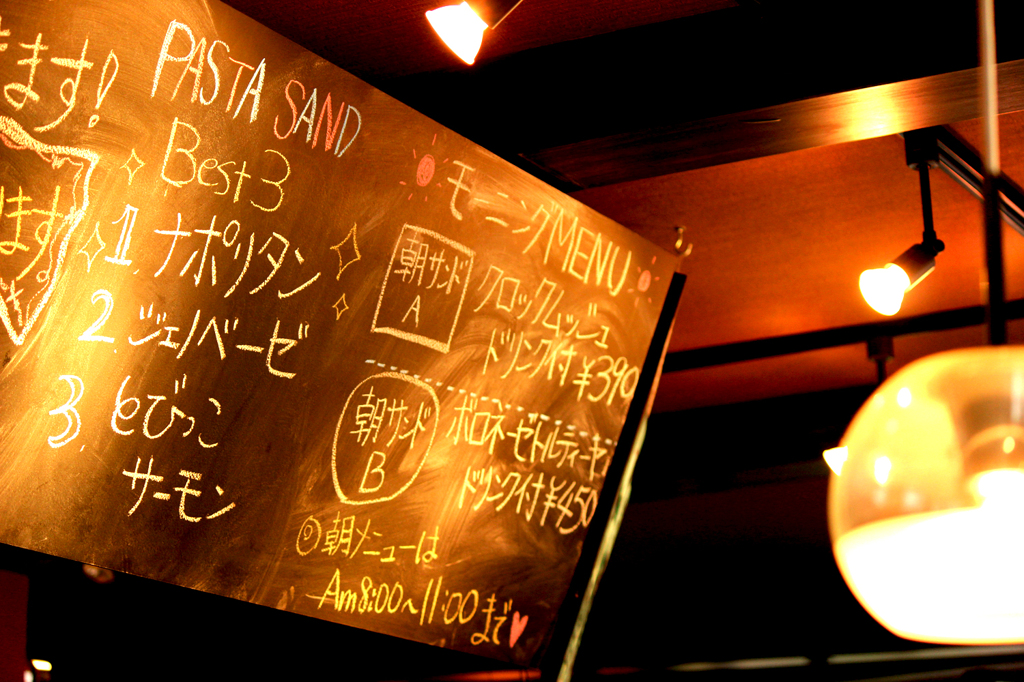 ます!
ます
PASTA SAND
Best 3
1. ナポリタン
2. ジェノベーゼ
3. とびっこ
サーモン
モーニングMENU
朝サンド
A
クロックムッシュ
ドリンク付 ¥390
朝サンド
B
ボロネーゼトルティーヤ
ドリンク付 ¥450
◎朝メニューは
Am8:00~11:00まで